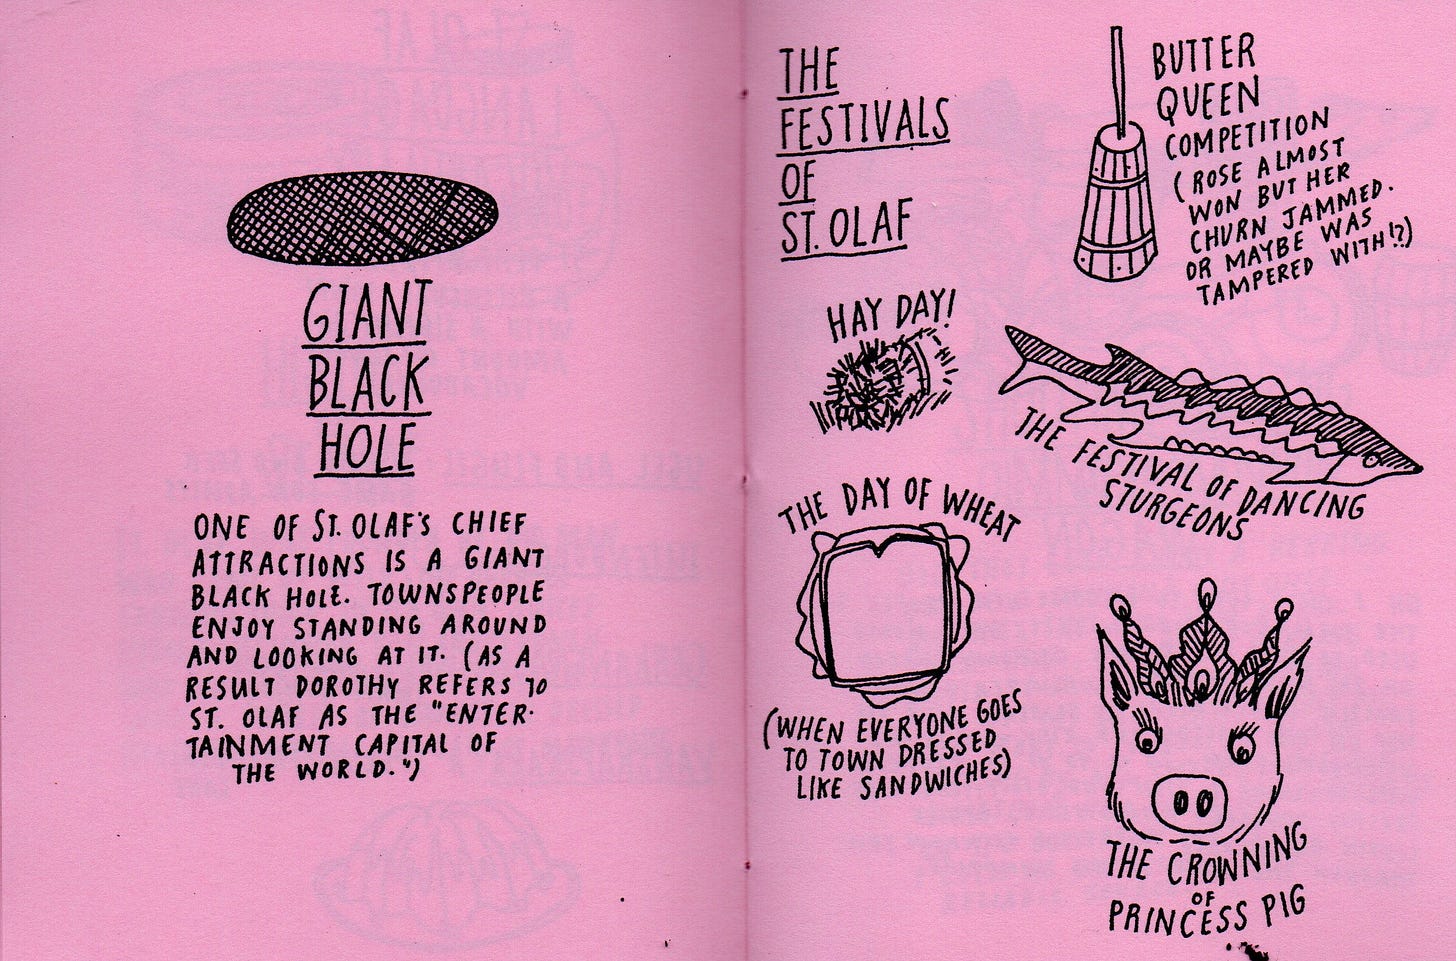 GIANT
BLACK
HOLE
ONE OF ST. OLAF'S CHIEF
ATTRACTIONS IS A GIANT
BLACK HOLE. TOWNSPEOPLE
ENJOY STANDING AROUND
AND LOOKING AT IT. (AS A
RESULT DOROTHY REFERS TO
ST. OLAF AS THE "ENTER-
TAINMENT CAPITAL OF
THE WORLD.")
THE
FESTIVALS
OF
ST. OLAF
BUTTER
QUEEN
COMPETITION
(ROSE ALMOST
WON BUT HER
CHURN JAMMED.
OR MAYBE WAS
TAMPERED WITH!?)
HAY DAY!
THE FESTIVAL OF DANCING
STURGEONS
THE DAY OF WHEAT
(WHEN EVERYONE GOES
TO TOWN DRESSED
LIKE SANDWICHES)
THE CROWNING
OF
PRINCESS PIG